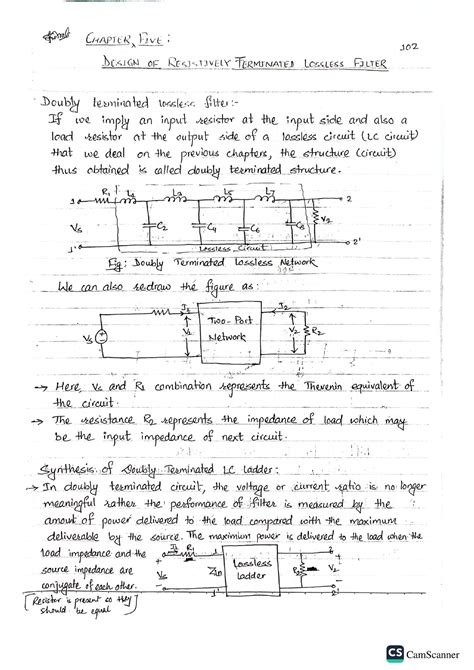 CHAPTER FIVE:
102
DESIGN OF RESISTIVELY TERMINATED LOSSLESS FILTER
Doubly terminated lossless filter:-
If we imply an input resistor at the input side and also a
load resistor at the output side of a lossless circuit (LC circuit)
that we deal on the previous chapters, the structure (circuit)
thus obtained is called doubly terminated structure.
1 R1 L1 L3 L5 L7 2
Vs C2 C4 C6 C8 V2
1' Lossless Circuit 2'
Eg: Doubly Terminated Lossless Network
We can also redraw the figure as:
I1 I2
Vs V1 Two-Port V2 R2
Network
→ Here, Vs and R1 combination represents the Thevenin equivalent of
the circuit.
→ The resistance R2 represents the impedance of load which may
be the input impedance of next circuit.
Synthesis of Doubly Terminated LC Ladder:
→ In doubly terminated circuit, the voltage or current ratio is no longer
meaningful rather the performance of filter is measured by the
amout of power delivered to the load compared with the maximum
deliverable by the source. The maximium power is delivered to the load when the
load impedance and the
source impedance are
conjugate of each other.
[Resistor is present so they
should be equal]
I1 R1 Lossless +
Vs Zin ladder R2 V2
1' 2'
CS CamScanner